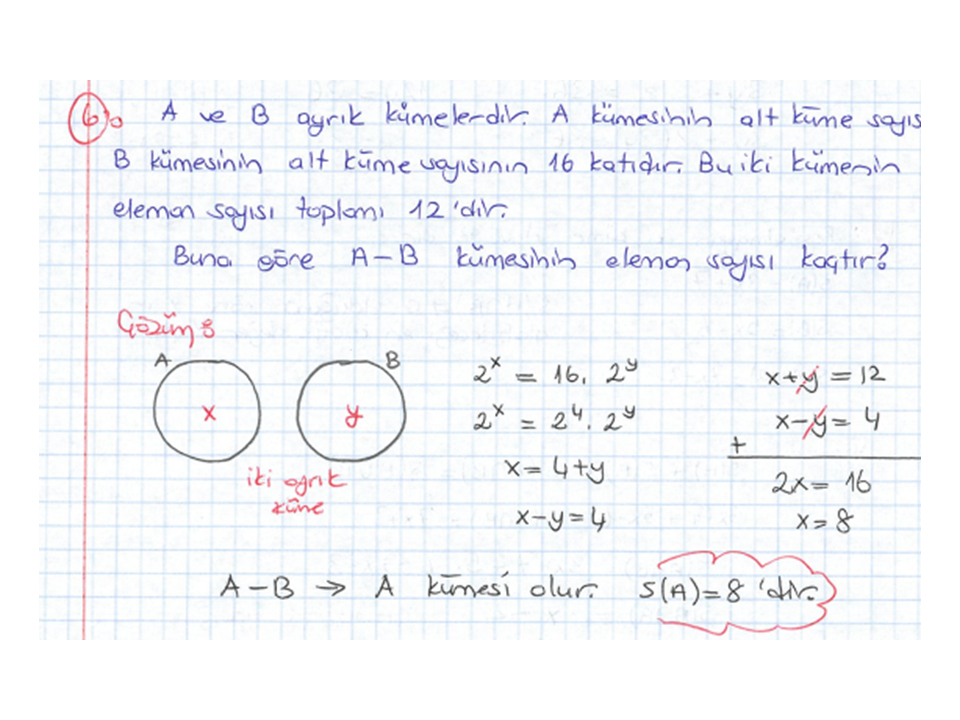 6) A ve B ayrık kümelerdir. A kümesinin alt küme sayıs
B kümesinin alt küme sayısının 16 katıdır. Bu iki kümenin
eleman sayısı toplamı 12'dir.
Buna göre A-B kümesinin eleman sayısı kaçtır?
Çözüm:
A B
x y
iki ayrık
küme
2^x = 16. 2^y
2^x = 2^4. 2^y
x = 4+y
x-y=4
x+y=12
x-y=4
+
2x=16
x=8
A-B → A kümesi olur. s(A)=8 'dir.